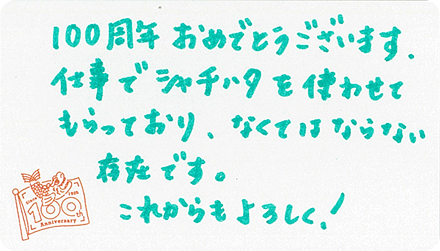 100周年 おめでとうございます.
仕事で シャチハタ を 使わせて
もらっており、なくてはならない
存在です。
これからもよろしく!
Since 1925
100th
Anniversary